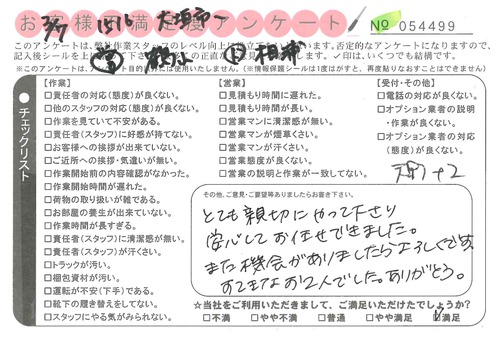 お客様満足度アンケート
№ 054499
記入後シールを上
【作業】
□責任者の対応(態度)が良くない。
□他のスタッフの対応(態度)が良くない。
□作業を見ていて不安がある。
□責任者(スタッフ)に好感が持てない。
□お客様への挨拶が出来ていない。
□ご近所への挨拶・気遣いが無い。
□作業開始前の内容確認がなかった。
□作業開始時間が遅れた。
□荷物の取り扱いが雑である。
□お部屋の養生が出来ていない。
□作業時間が長すぎる。
□責任者(スタッフ)に清潔感が無い。
□責任者(スタッフ)が汗くさい。
□トラックが汚い。
□梱包資材が汚い。
□運転が不安(下手)である。
□靴下の履き替えをしてない。
□スタッフにやる気がみられない。
【営業】
□見積もり時間に遅れた。
□見積もり時間が長い。
□営業マンに清潔感が無い。
□営業マンが煙草くさい。
□営業マンが汗くさい。
□営業態度が良くない。
□営業の説明と作業が一致してない。
【受付・その他】
□電話の対応が良くない。
□オプション業者の説明
・作業が良くない。
□オプション業者の対応
(態度)が良くない。
チェックリスト
その他、ご意見・ご要望等ありましたらお書き下さい。
とても親切にやって下さり
安心してお任せできました。
また機会がありましたらよろしくです。
すてきなお2人でした。ありがとう。
☆当社をご利用いただきまして、ご満足いただけたでしょうか?
□不満 □やや不満 □普通 □やや満足 ☑満足